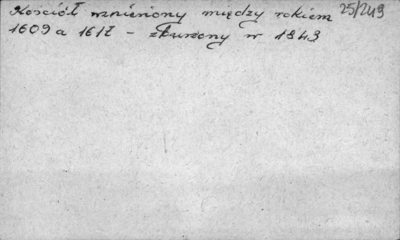 Kościół wzniesiony między rokiem 25/249
1609 a 1612 - zburzony w 1843